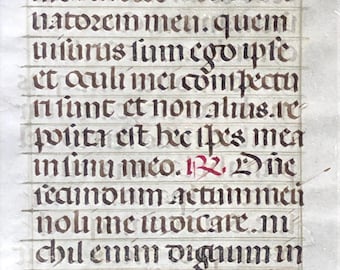 uatorem meu. quem
uisurus sum ego ipse
et oculi mei conspectu
ri sunt et non alius. re
posita est hec spes mea
in sinu meo. R. Dñe
secundum actum meū
noli me iudicare. ni
chil enim dignum in